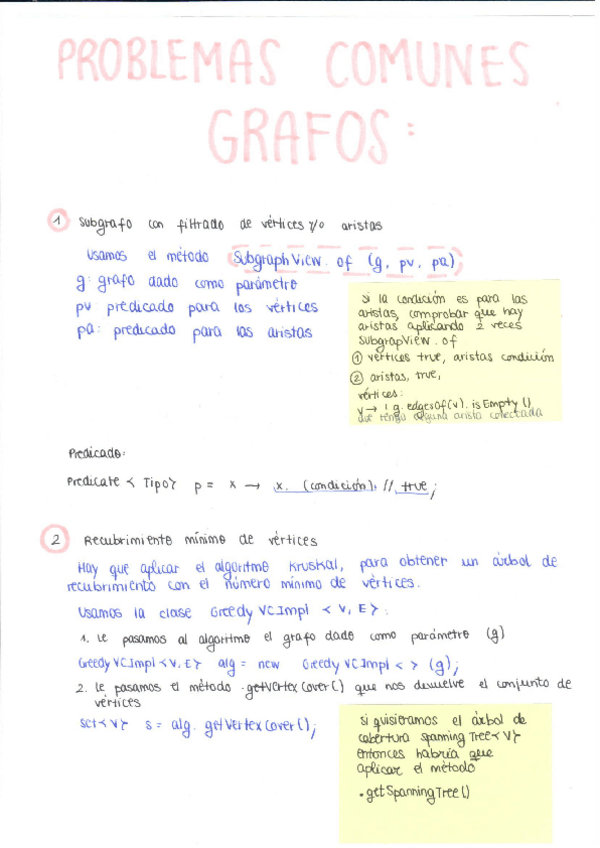 PROBLEMAS COMUNES
GRAFOS:
1 Subgrafo con filtrado de vértices y/o aristas
Usamos el método SubgraphView.of (g, pv, pa)
g: grafo dado como parámetro
pv predicado para los vértices
pa: predicado para las aristas
Si la condición es para las
aristas, comprobar que hay
aristas aplicando 2 veces
SubgrapView.of
1 vértices true, aristas condición
2 aristas, true,
vértices:
v → ! g.edgesOf(v).isEmpty()
que tenga alguna arista conectada
Predicado:
Predicate < Tipo> p = x → x. (condición), // true;
2 Recubrimiento mínimo de vértices
Hay que aplicar el algoritmo Kruskal, para obtener un árbol de
recubrimiento con el número mínimo de vértices.
Usamos la clase Greedy VCImpl < V, E>:
1. Le pasamos al algoritmo el grafo dado como parámetro (g)
Greedy VCImpl <V,E> alg = new Greedy VCImpl < > (g);
2. Le pasamos el método .getVertexCover() que nos devuelve el conjunto de
vértices
Set<V> s = alg. getVertexCover();
Si quisieramos el árbol de
cobertura SpanningTree<V>
entonces habría que
aplicar el método
.getSpanningTree()